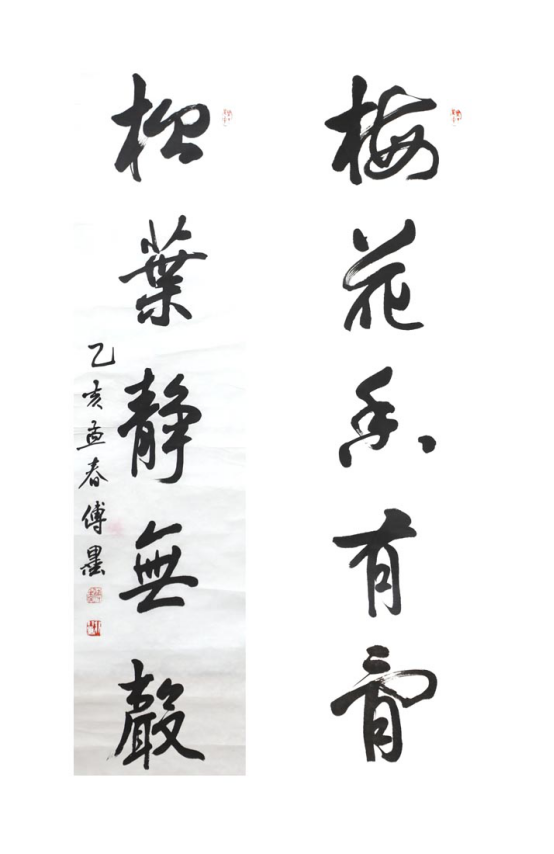 梅花香有骨
松葉静無聲
乙亥孟春傅墨